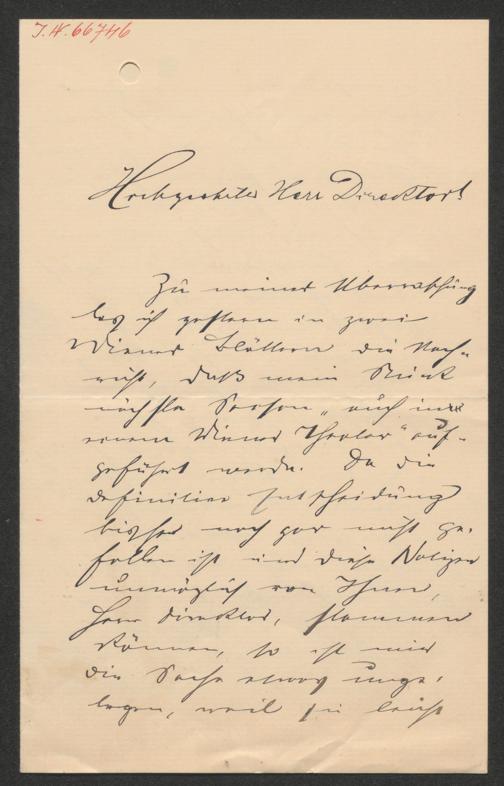 J.N. 66746
Hochgeehrter Herr Direktor!
Zu meiner Überraschung
las ich gestern in zwei
Wiener Blättern die Nach-
richt, daß mein Stück
nächste Saison „auch in
einem Wiener Theater“ auf-
geführt werde. Da die
definitive Entscheidung
bisher noch gar nicht ge-
fallen ist und diese Notizen
unmöglich von Ihnen,
Herr Direktor, stammen
können, so ist mir
die Sache etwas unge-
legen, weil sie leicht